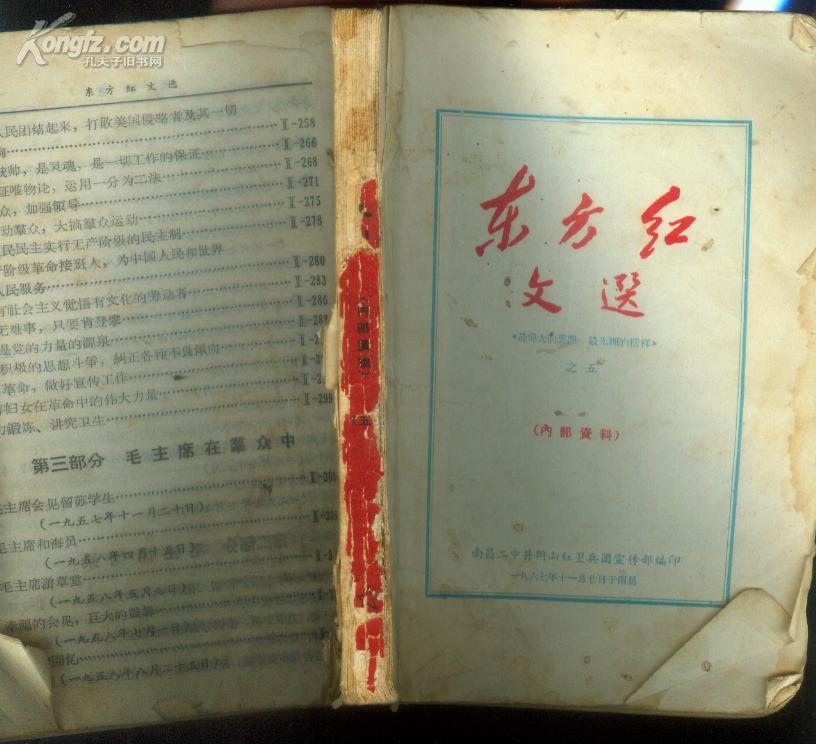 Kongfz.com
孔夫子旧书网
东方红文选
人民团结起来，打败美国侵略者及其一切
狗……Ⅱ-258
统帅，是灵魂，是一切工作的保证……Ⅱ-266
证唯物论，运用一分为二法……Ⅱ-268
众，加强领导……Ⅱ-271
动羣众，大搞羣众运动……Ⅱ-275
人民民主实行无产阶级的民主制……Ⅱ-278
产阶级革命接班人，为中国人民和世界
人民服务……Ⅱ-280
有社会主义觉悟有文化的劳动者……Ⅱ-283
无难事，只要肯登攀……Ⅱ-286
是党的力量的源泉……Ⅱ-28
积极的思想斗争，糾正各种不良倾向
革命，做好宣传工作
妇女在革命中的伟大力量
力鍛炼、讲究卫生……Ⅱ-299
第三部分 毛主席在羣众中
毛主席会见留苏学生……Ⅱ-301
（一九五七年十一月二十日）
毛主席和海员
（一九五八年四月十五日）
毛主席游草堂
（一九五八年五月九日）
的会见，巨大的鼓舞
（一九五八年七月一日）
回忆
（一九五八年八月二十五日）
（内部資料）
（五）
东方红
文選
《最偉大的思想 最光輝的榜样》
之五
（內部資料）
南昌二中井岡山红卫兵团宣传部編印
一九六七年十一月廿日于南昌